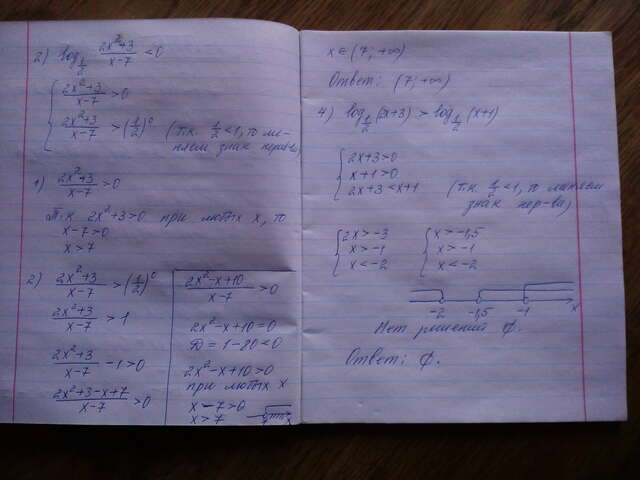 2) log_{1/2} (2x²+3)/(x-7) < 0
{ (2x²+3)/(x-7) > 0
(2x²+3)/(x-7) > (1/2)⁰ (т.к. 1/2 < 1, то ме-
няем знак нерав-ва)
1) (2x²+3)/(x-7) > 0
Т.к 2x²+3>0 при любых x, то
x-7>0
x>7
2) (2x²+3)/(x-7) > (1/2)⁰
(2x²+3)/(x-7) > 1
(2x²+3)/(x-7) - 1 > 0
(2x²+3-x+7)/(x-7) > 0
(2x²-x+10)/(x-7) > 0
2x²-x+10=0
D=1-80<0
2x²-x+10>0
при любых x
x-7>0
x>7
x
x∈(7;+∞)
Ответ: (7;+∞)
4) log_{1/2}(2x+3) > log_{1/2}(x+1)
{ 2x+3>0
x+1>0
2x+3<x+1 (т.к 1/2<1, то меняем
знак нер-ва)
{ 2x>-3 { x>-1,5
x>-1 x>-1
x<-2 x<-2
-2 -1,5 -1 x
Нет решений ∅.
Ответ: ∅.